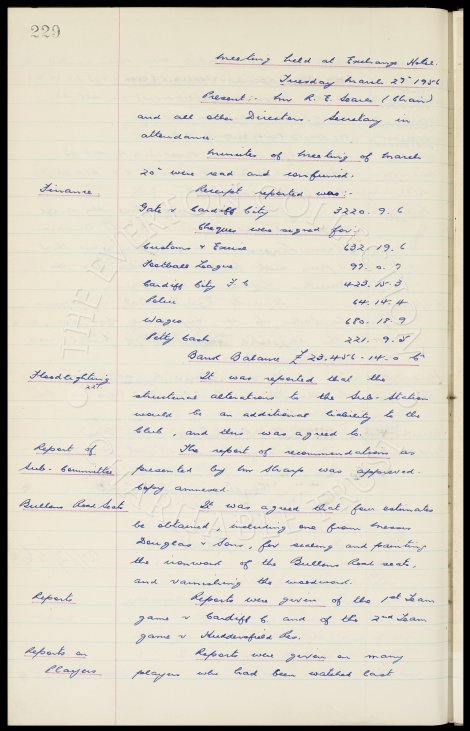 229
Meeting held at Exchange Hotel.
Tuesday March 27th 1956
Present:- Mr R. E. Searle (Chair)
and all other Directors. Secretary in
attendance.
Minutes of Meeting of March
20th were read and confirmed.
Finance Receipt reported was:-
Gate v Cardiff City 3220. 9. 6
Cheques were signed for:-
Customs & Excise 632. 19. 6
Football League 97. 0. 7
Cardiff City F C 423. 15. 3
Police 64. 14. 4
Wages 680. 18. 9
Petty Cash 221. 9. 5
Bank Balance £ 23,456 - 14. 0
Floodlighting It was reported that the
221
structural alterations to the Sub-Station
would be an additional liability to the
Club, and this was agreed to.
Report of The report of recommendations as
Sub-Committee presented by Mr Sharp was approved.
Copy annexed.
Bullens Road Seats It was agreed that four estimates
be obtained, including one from Messrs
Douglas & Sons, for scaling and painting
the ironwork of the Bullens Road seats,
and varnishing the woodwork.
Reports Reports were given of the 1st Team
game v Cardiff C and of the 2nd Team
game v Huddersfield Res.
Reports on Reports were given on many
Players players who had been watched last
THE EVERTON
CHARITABLE TRUST